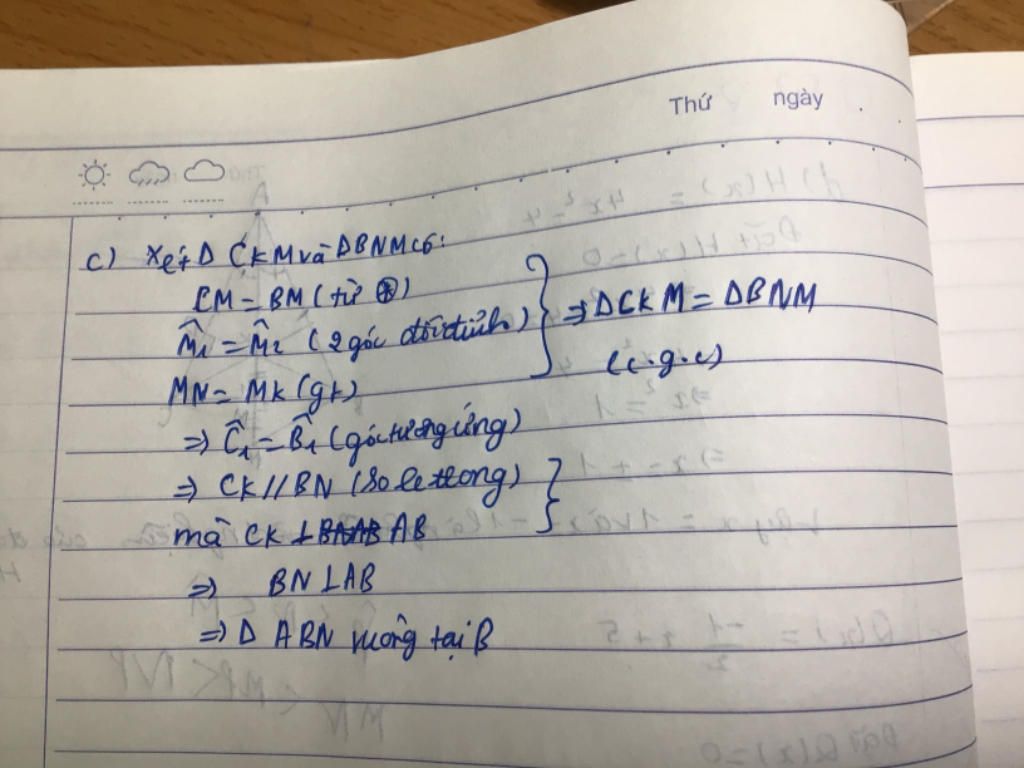 Thứ ngày .
c) Xét Δ CKM và ΔBNM có:
CM = BM (từ ⊛)
M̂₁ = M̂₂ (2 góc đối đỉnh) } ⇒ ΔCKM = ΔBNM
MN = MK (gt) (c.g.c)
⇒ Ĉ₁ = B̂₁ (góc tương ứng)
⇒ CK // BN (so le trong) }
mà CK ⊥ AB
⇒ BN ⊥ AB
⇒ Δ ABN vuông tại B